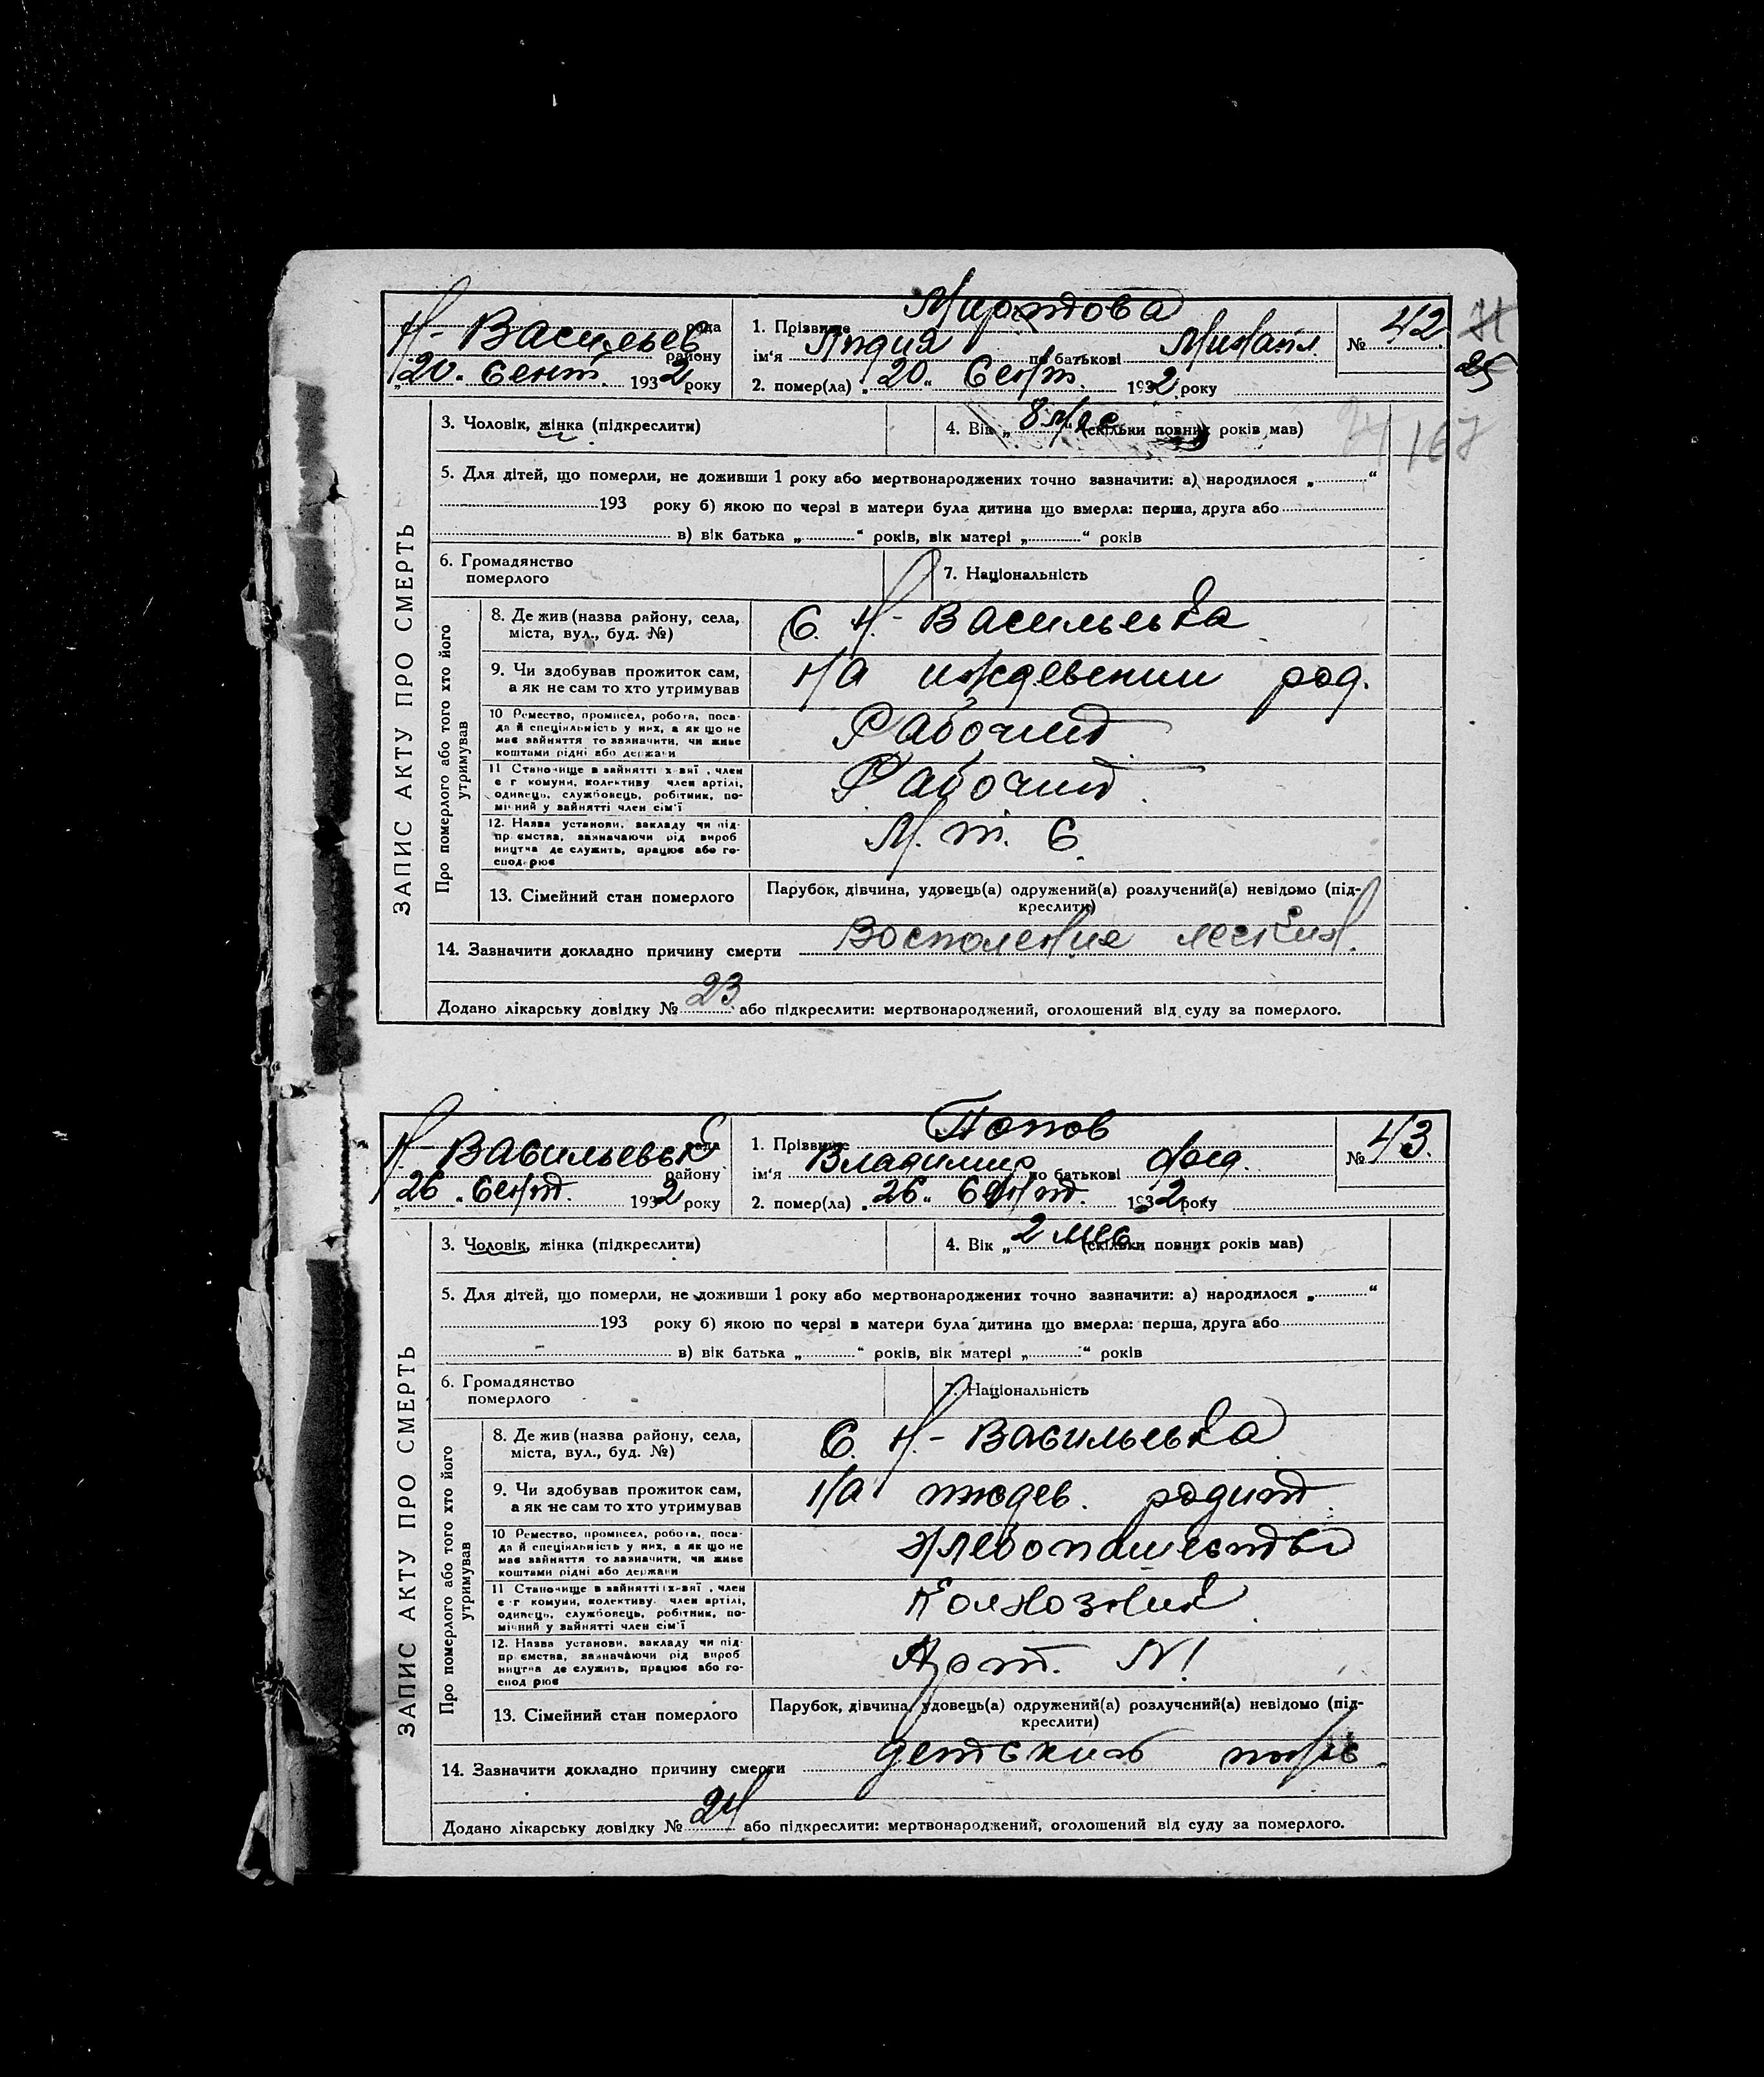 Н-Васильев рада
району
„20. Сент. 1932 року
1. Прізвище
ім'я Лидия по батькові Михайл.
2. помер(ла) „20„ Сент. 1932 року
№ 42.
25
167
3. Чоловік, жінка (підкреслити)
4. Вік „ 8 мес (скільки повних років мав)
5. Для дітей, що померли, не доживши 1 року або мертвонароджених точно зазначити: а) народилося „ “
193 року б) якою по черзі в матери була дитина що вмерла: перша, друга або
в) вік батька „ “ років, вік матері „ “ років
6. Громадянство
померлого
7. Національність
ЗАПИС АКТУ ПРО СМЕРТЬ
Про померлого або того хто його
утримував
8. Де жив (назва району, села,
міста, вул., буд. №)
С. Н.-Васильевка
9. Чи здобував прожиток сам,
а як не сам то хто утримував
На иждевении род.
10 Ремество, промисел, робота, поса-
да й спеціяльність у них, а як що не
має зайняття то зазначити, чи живе
коштами рідні або держави
Рабочий
11 Становище в зайнятті х-вяї, член
с г комуни, колективу член артілі,
одинець, службовець, робітник, по-
мічний у зайнятті член сім'ї
Рабочий
12. Назва установи, закладу чи під-
приємства, зазначаючи рід вироб
ництва де служить, працює або го-
сподарює
М. Т. С.
13. Сімейний стан померлого
Парубок, дівчина, удовець(а) одружений(а) розлучений(а) невідомо (під-
креслити)
14. Зазначити докладно причину смерти Восполение леских.
Додано лікарську довідку № 23 або підкреслити: мертвонароджений, оголошений від суду за померлого.
Н-Васильевск рада
району
„26 „ Сент. 1932 року
1. Прізвище Попов
ім'я Владимир по батькові
2. помер(ла) „26„ Сент. 1932 року
№ 43.
3. Чоловік, жінка (підкреслити)
4. Вік „ 2 мес. (скільки повних років мав)
5. Для дітей, що померли, не доживши 1 року або мертвонароджених точно зазначити: а) народилося „ “
193 року б) якою по черзі в матери була дитина що вмерла: перша, друга або
в) вік батька „ “ років, вік матері „ “ років
6. Громадянство
померлого
7. Національність
ЗАПИС АКТУ ПРО СМЕРТЬ
Про померлого або того хто його
утримував
8. Де жив (назва району, села,
міста, вул., буд. №)
С. Н.-Васильевка
9. Чи здобував прожиток сам,
а як не сам то хто утримував
На родит.
10 Ремество, промисел, робота, поса-
да й спеціяльність у них, а як що не
має зайняття то зазначити, чи живе
коштами рідні або держави
Хлебопашество
11 Становище в зайнятті х-вяї, член
с г комуни, колективу член артілі,
одинець, службовець, робітник, по-
мічний у зайнятті член сім'ї
Колхозник
12. Назва установи, закладу чи під-
приємства, зазначаючи рід вироб
ництва де служить, працює або го-
сподарює
Арт. №1
13. Сімейний стан померлого
Парубок, дівчина, удовець(а) одружений(а) розлучений(а) невідомо (під-
креслити)
14. Зазначити докладно причину смерти
Додано лікарську довідку № 24 або підкреслити: мертвонароджений, оголошений від суду за померлого.